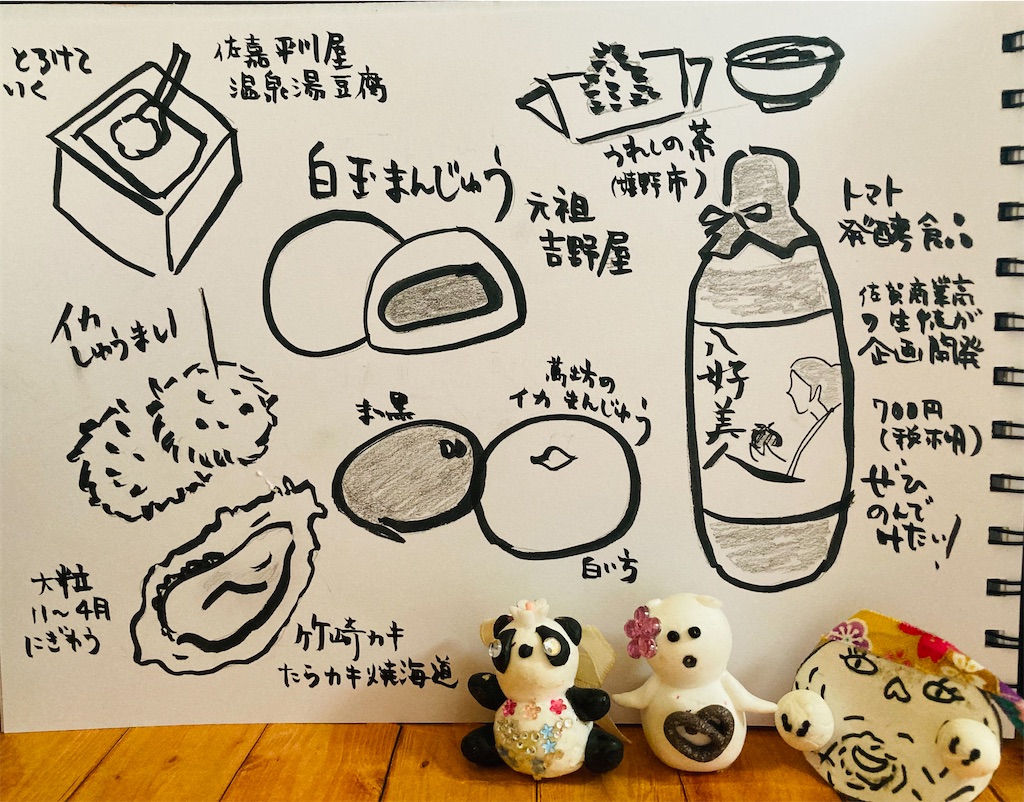 とろけて
いく
佐嘉平川屋
温泉湯豆腐
うれしの茶
(嬉野市)
白玉まんじゅう
元祖
吉野屋
トマト
発酵食品
佐賀商業高
の生徒が
企画開発
700円
(税抜)
ぜひ
のんで
みたい!
イカ
しゅうまい
まっ黒
萬坊の
イカまんじゅう
白い方
八好美人
大粒
11〜4月
にぎわう
竹崎カキ
たらカキ焼海道